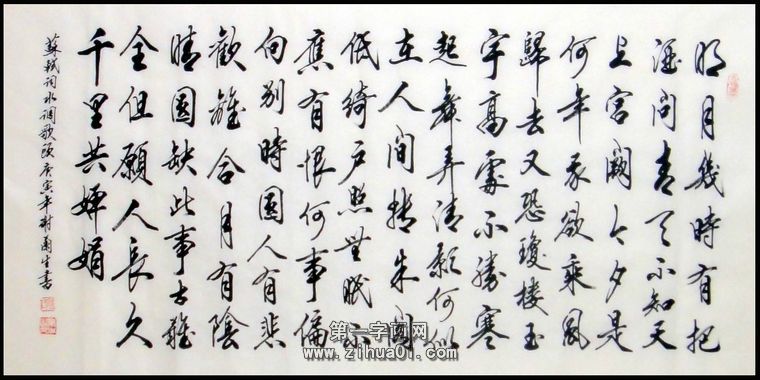 明月幾時有把
酒问青天不知天
上宫阙今夕是
何年我欲乘風
歸去又恐瓊樓玉
宇高處不勝寒
起舞弄清影何似
在人间转朱阁
低绮户照無眠不
應有恨何事偏
向别時圆人有悲
歡離合月有陰
晴圆缺此事古難
全但願人長久
千里共婵娟
蘇軾词水调歌頭庚寅年谢生書
第一字画网
www.zihua01.com